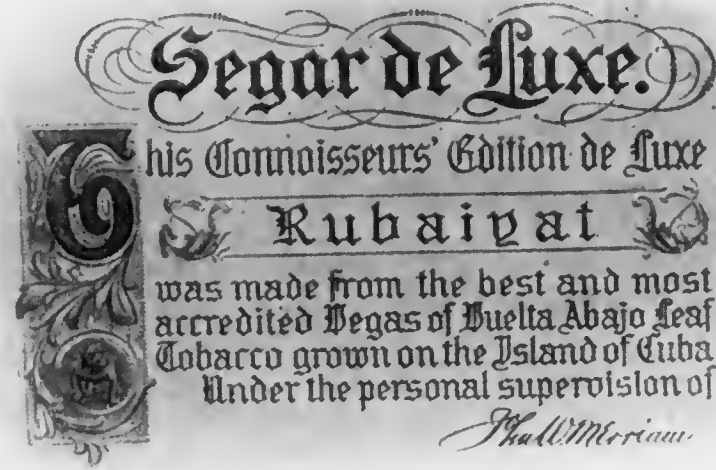 Segar de Luxe.
This Connoisseurs' Edition de Luxe
Rubaiyat
was made from the best and most
accredited Vegas of Vuelta Abajo Leaf
Tobacco grown on the Island of Cuba
Under the personal supervision of
Jno. W. Merriam.